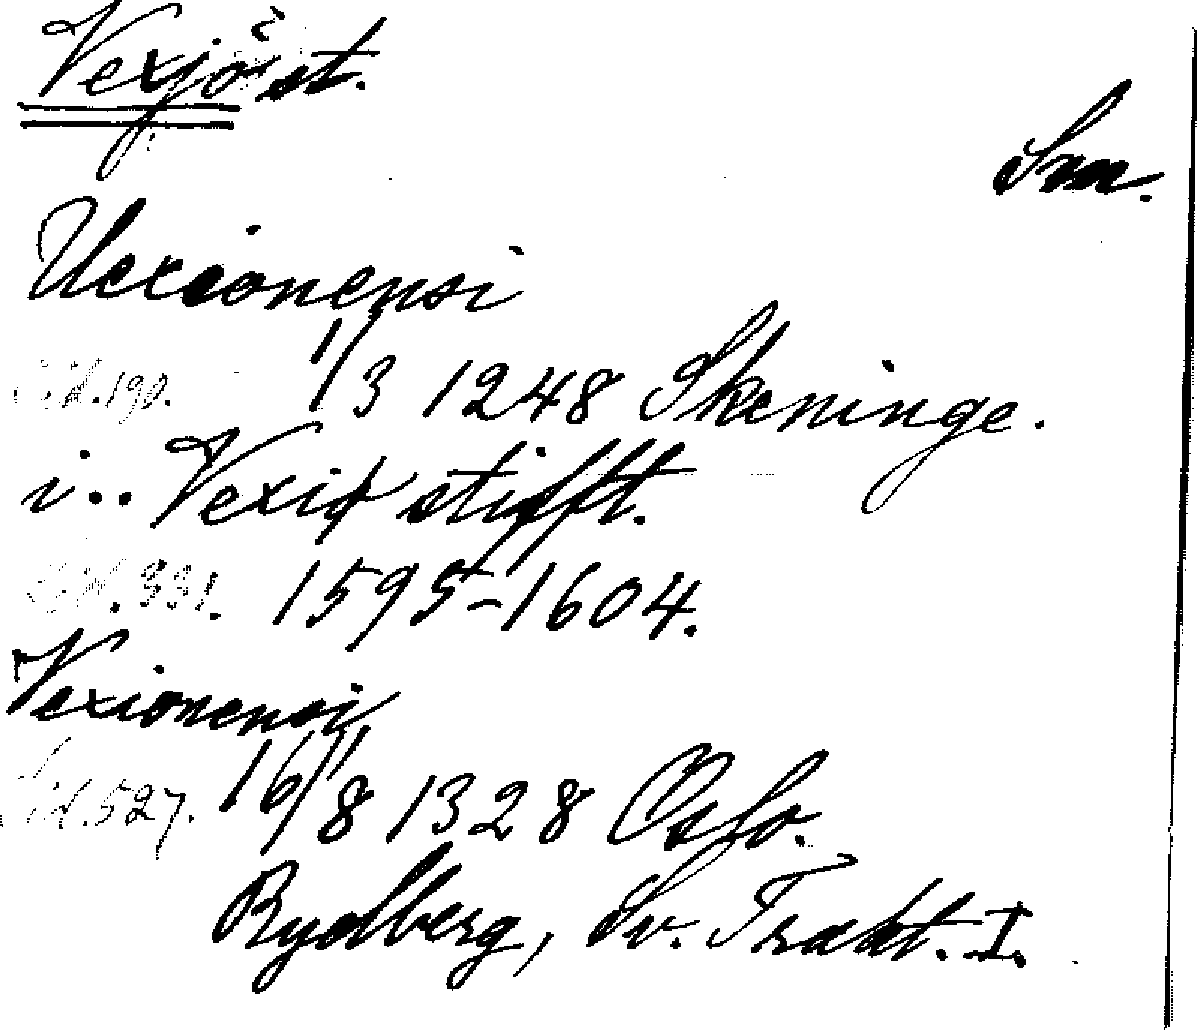 Vexjö st.
Sm.
Uexionensi
Sid. 190. 1/3 1248 Skeninge.
i.. Vexiø stifft.
Sid. 331. 1595-1604.
Vexionensi
Sid. 527. 16/8 1328 Oslo.
Rydberg, Sv. Trakt. I.